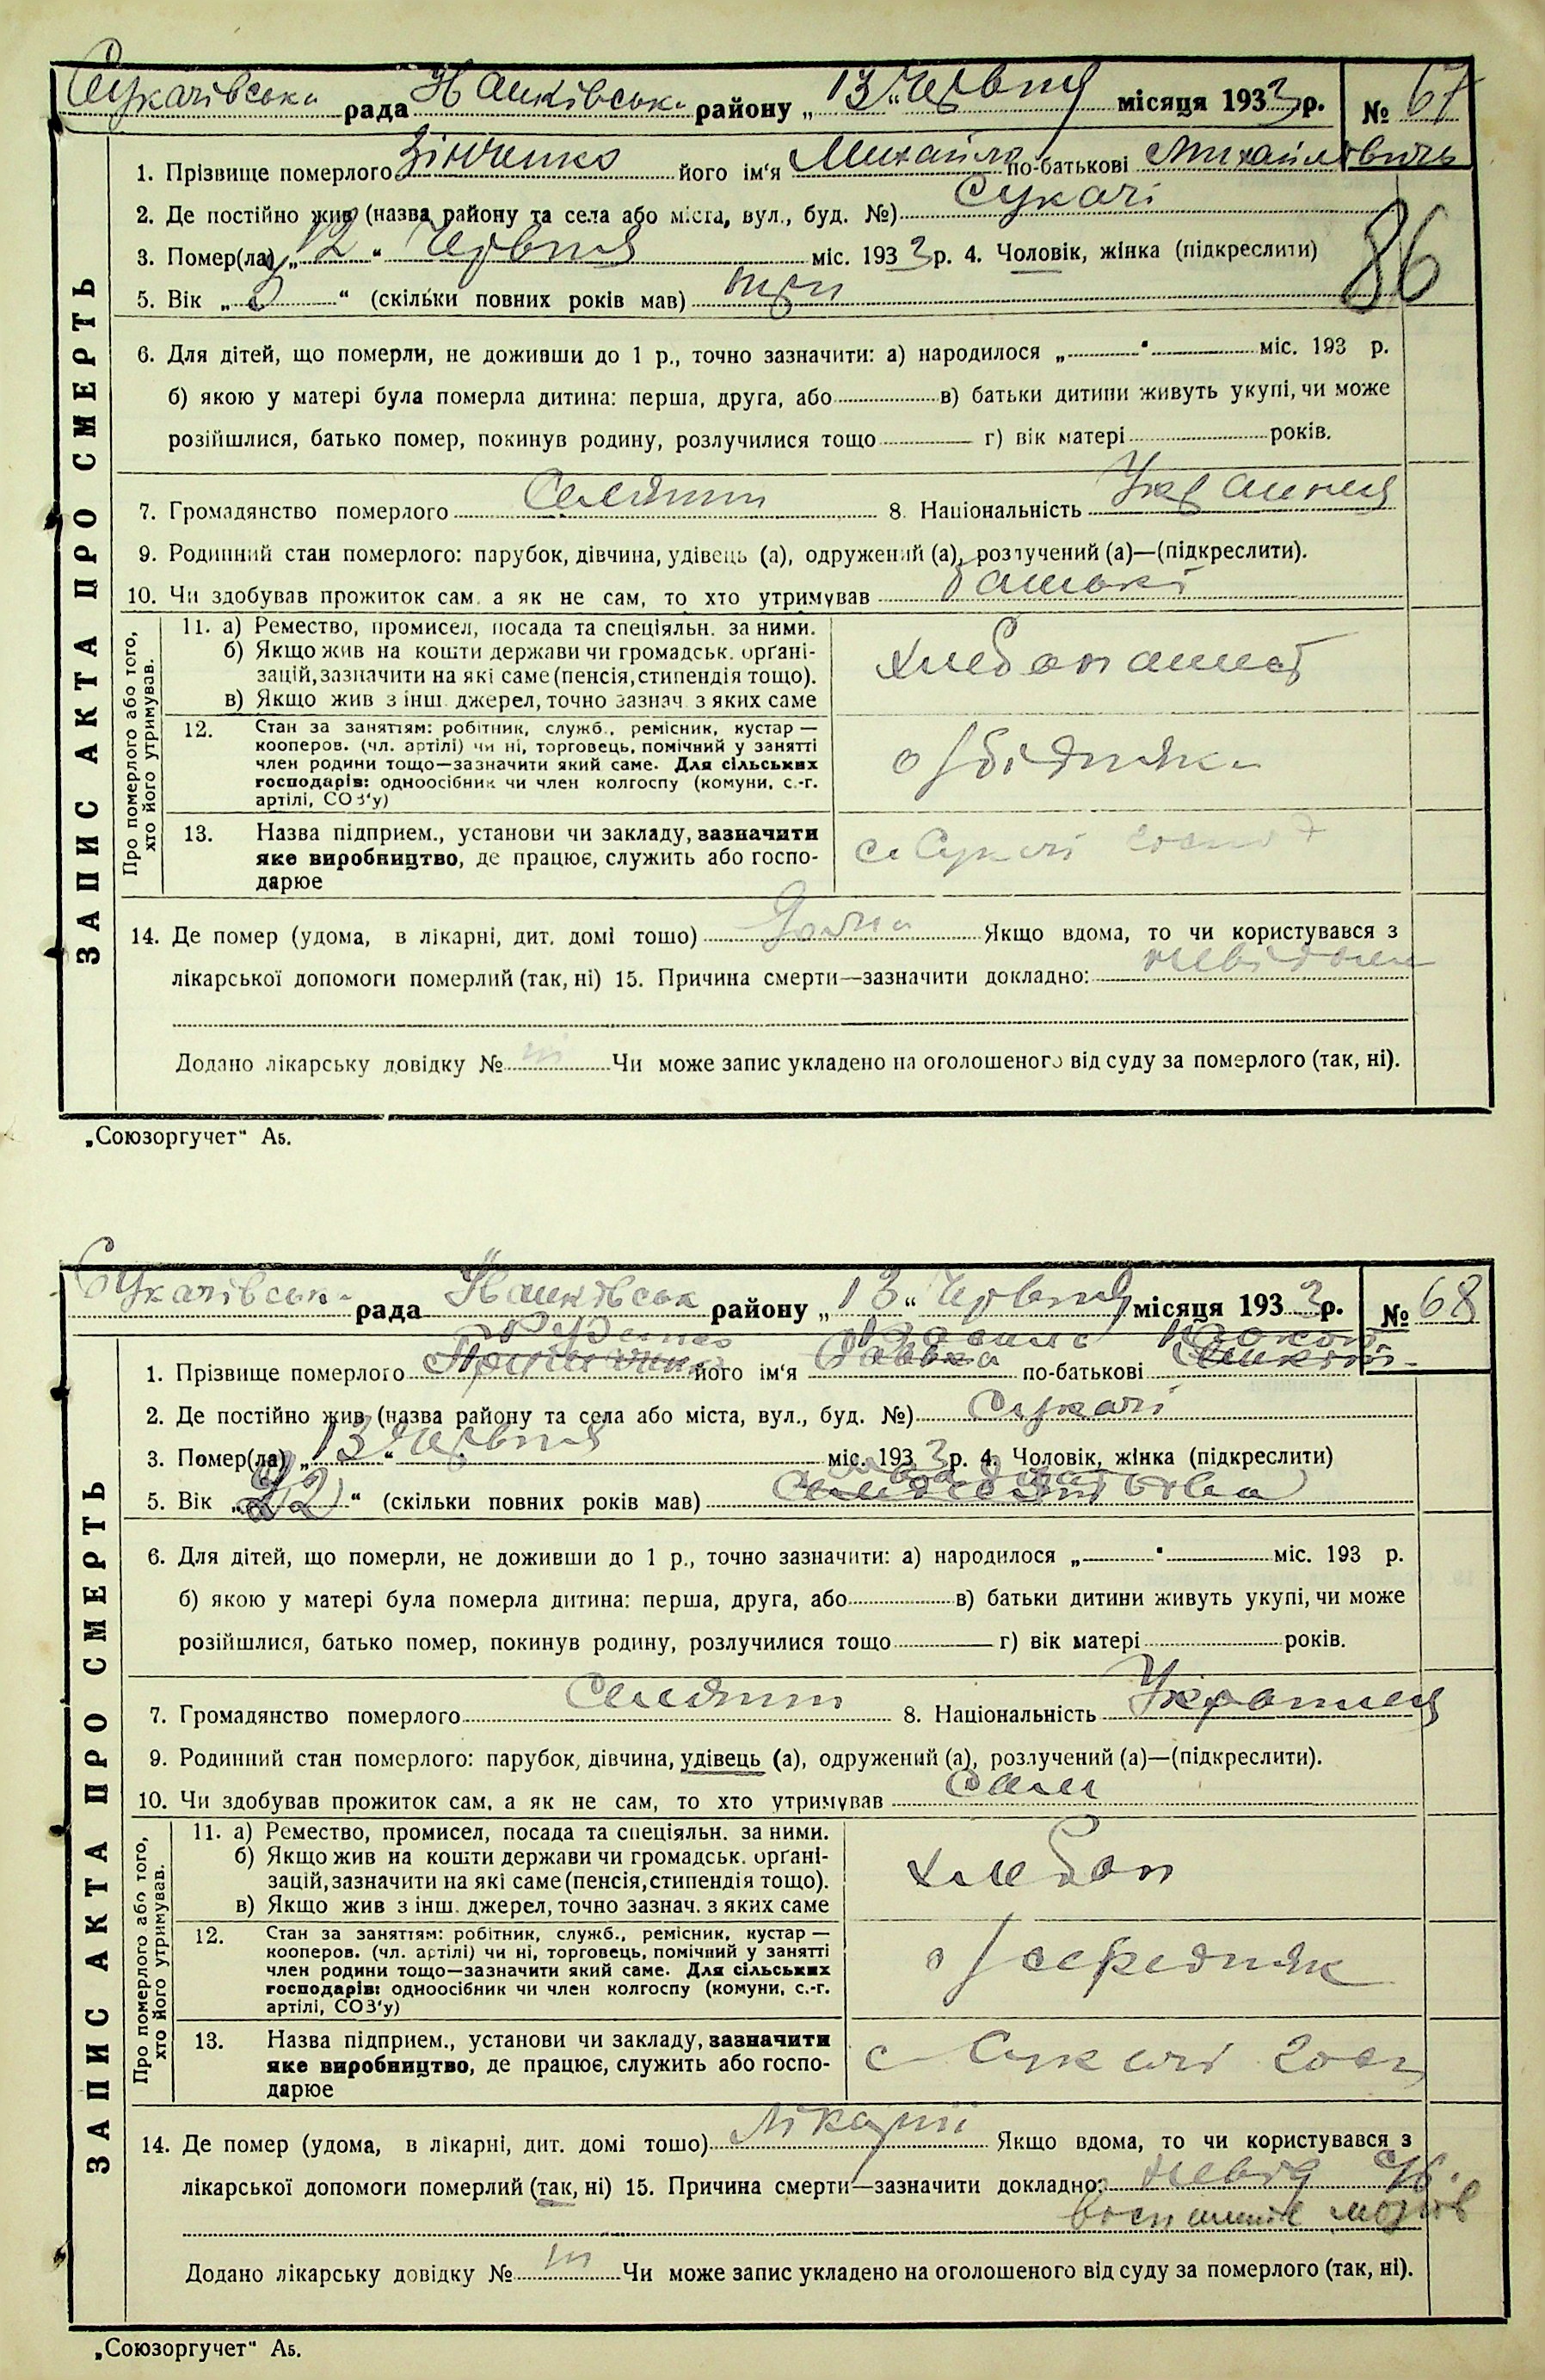 Сукачівська рада Іванківськ. району „13“ Червня місяця 1933 р. № 67
1. Прізвище померлого Зінченко його ім'я Михайло по-батькові Михайлович
2. Де постійно жив (назва району та села або міста, вул., буд. №) Сукачі
3. Помер(ла) „12“ Червня міс. 1933 р. 4. Чоловік, жінка (підкреслити)
86
5. Вік „3“ (скільки повних років мав) три
6. Для дітей, що померли, не доживши до 1 р., точно зазначити: а) народилося „ “ міс. 193 р.
б) якою у матері була померла дитина: перша, друга, або в) батьки дитини живуть укупі, чи може
розійшлися, батько помер, покинув родину, розлучилися тощо г) вік матері років.
7. Громадянство померлого Селянин 8. Національність Українця
9. Родинний стан померлого: парубок, дівчина, удівець (а), одружений (а), розлучений (а)—(підкреслити).
10. Чи здобував прожиток сам, а як не сам, то хто утримував батькі
11. а) Ремество, промисел, посада та спеціяльн. за ними.
б) Якщо жив на кошти держави чи громадськ. орґані-
зацій, зазначити на які саме (пенсія, стипендія тощо).
в) Якщо жив з інш. джерел, точно зазнач. з яких саме
12. Стан за заняттям: робітник, служб., ремісник, кустар —
кооперов. (чл. артілі) чи ні, торговець, помічний у занятті
член родини тощо—зазначити який саме. Для сільських
господарів: одноосібник чи член колгоспу (комуни, с.-г.
артілі, СОЗ'у)
о/бідняк
13. Назва підприєм., установи чи закладу, зазначити
яке виробництво, де працює, служить або госпо-
дарює
с Сукачі
14. Де помер (удома, в лікарні, дит. домі тощо) Дома Якщо вдома, то чи користувався з
лікарської допомоги померлий (так, ні) 15. Причина смерти—зазначити докладно: невідома
Додано лікарську довідку № ні Чи може запис укладено на оголошеного від суду за померлого (так, ні).
ЗАПИС АКТА ПРО СМЕРТЬ
Про померлого або того,
хто його утримував.
„Союзоргучет“ А5.
Сукачівська рада Іванківськ району „13“ Червня місяця 1933 р. № 68
1. Прізвище померлого його ім'я Василь по-батькові
2. Де постійно жив (назва району та села або міста, вул., буд. №) Сукачі
3. Помер(ла) „13“ Червня міс. 1933 р. 4. Чоловік, жінка (підкреслити)
5. Вік „22“ (скільки повних років мав)
6. Для дітей, що померли, не доживши до 1 р., точно зазначити: а) народилося „ “ міс. 193 р.
б) якою у матері була померла дитина: перша, друга, або в) батьки дитини живуть укупі, чи може
розійшлися, батько помер, покинув родину, розлучилися тощо г) вік матері років.
7. Громадянство померлого Селянин 8. Національність Українця
9. Родинний стан померлого: парубок, дівчина, удівець (а), одружений (а), розлучений (а)—(підкреслити).
10. Чи здобував прожиток сам, а як не сам, то хто утримував Сам
11. а) Ремество, промисел, посада та спеціяльн. за ними.
б) Якщо жив на кошти держави чи громадськ. орґані-
зацій, зазначити на які саме (пенсія, стипендія тощо).
в) Якщо жив з інш. джерел, точно зазнач. з яких саме
хлебоп
12. Стан за заняттям: робітник, служб., ремісник, кустар —
кооперов. (чл. артілі) чи ні, торговець, помічний у занятті
член родини тощо—зазначити який саме. Для сільських
господарів: одноосібник чи член колгоспу (комуни, с.-г.
артілі, СОЗ'у)
о/середняк
13. Назва підприєм., установи чи закладу, зазначити
яке виробництво, де працює, служить або госпо-
дарює
с Сукачі госп
14. Де помер (удома, в лікарні, дит. домі тощо) лікарні Якщо вдома, то чи користувався з
лікарської допомоги померлий (так, ні) 15. Причина смерти—зазначити докладно: невід
Додано лікарську довідку № ні Чи може запис укладено на оголошеного від суду за померлого (так, ні).
ЗАПИС АКТА ПРО СМЕРТЬ
Про померлого або того,
хто його утримував.
„Союзоргучет“ А5.